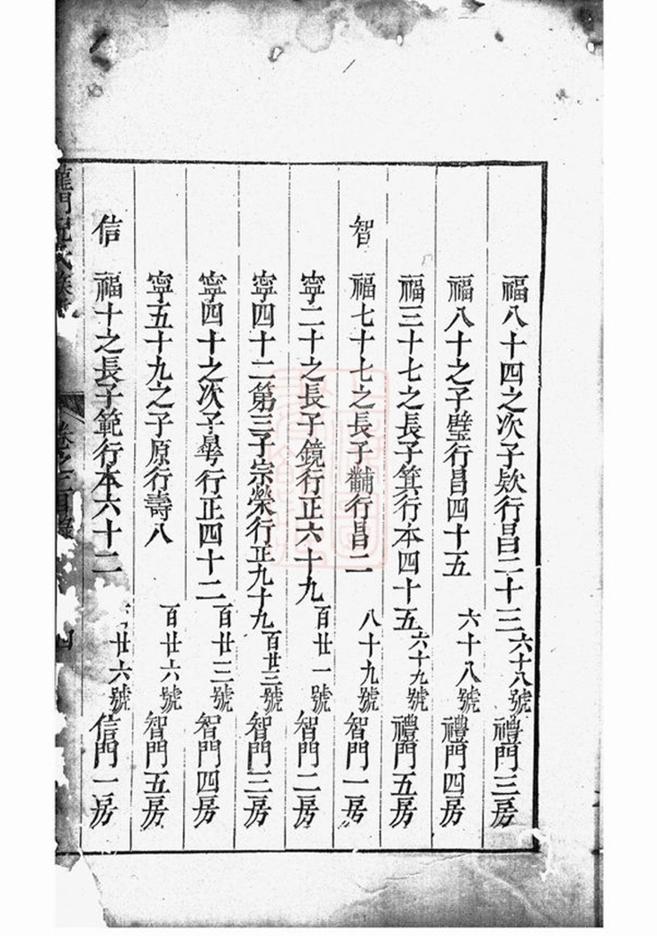 福八十四之次子欵行昌二十三 六十八號 禮門三房
福八十之子璧行昌四十五 六十八號 禮門四房
福三十七之長子箕行本四十五 六十九號 禮門五房
智 福七十七之長子黼行昌二 八十九號 智門一房
寧二十之長子鏡行正六十九 百廿一號 智門二房
寧四十二第三子宗榮行正九十九 百廿三號 智門三房
寧四十之次子舉行正四十二 百廿三號 智門四房
寧五十九之子原行壽八 百廿六號 智門五房
信 福十之長子範行本六十二 廿六號 信門一房
龍門 氏族 卷之三目錄 四